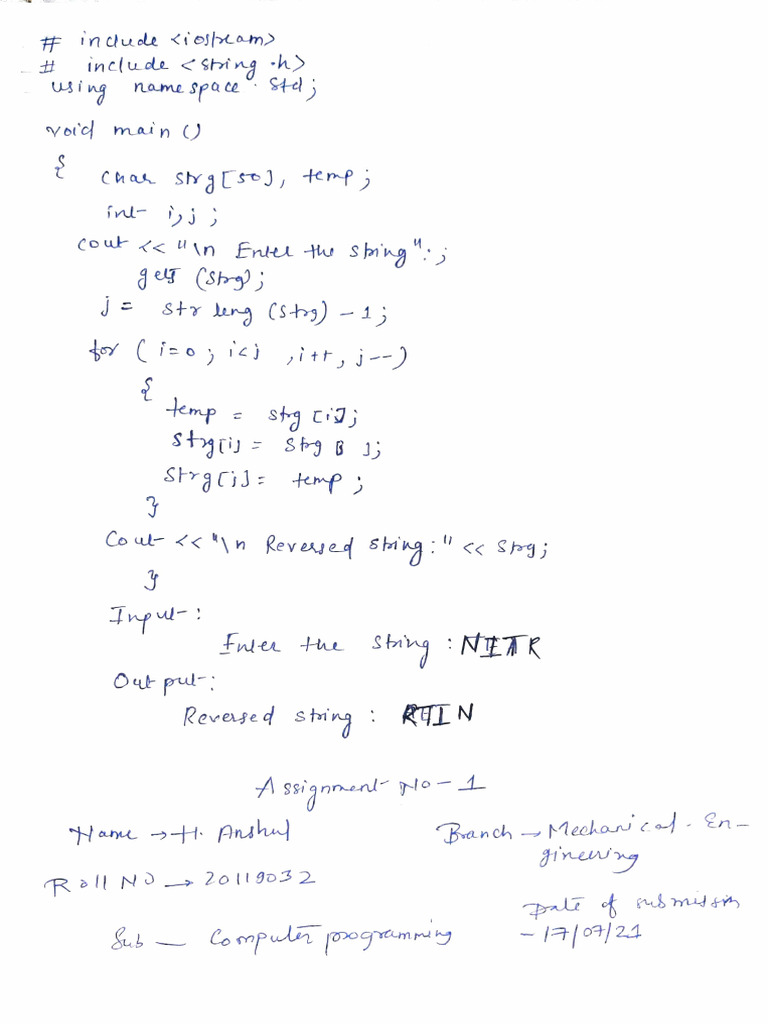 # include <iostream>
# include <string.h>
using namespace std;
void main ()
{
char strg[50], temp;
int i,j;
cout << "\n Enter the string":;
gets (strg);
j = str leng (strg) - 1;
for ( i=0; i<j , i++, j--)
{
temp = strg [i];
strg[i] = strg [ ];
strg[j] = temp;
}
Cout << "\n Reversed string:" << strg;
}
Input:
Enter the string : NITR
Output:
Reversed string : RTIN
Assignment No - 1
Name → H. Anshul
Branch → Mechanical En-
gineering
Roll NO → 20119032
Date of submission
- 17/07/21
Sub — Computer programming